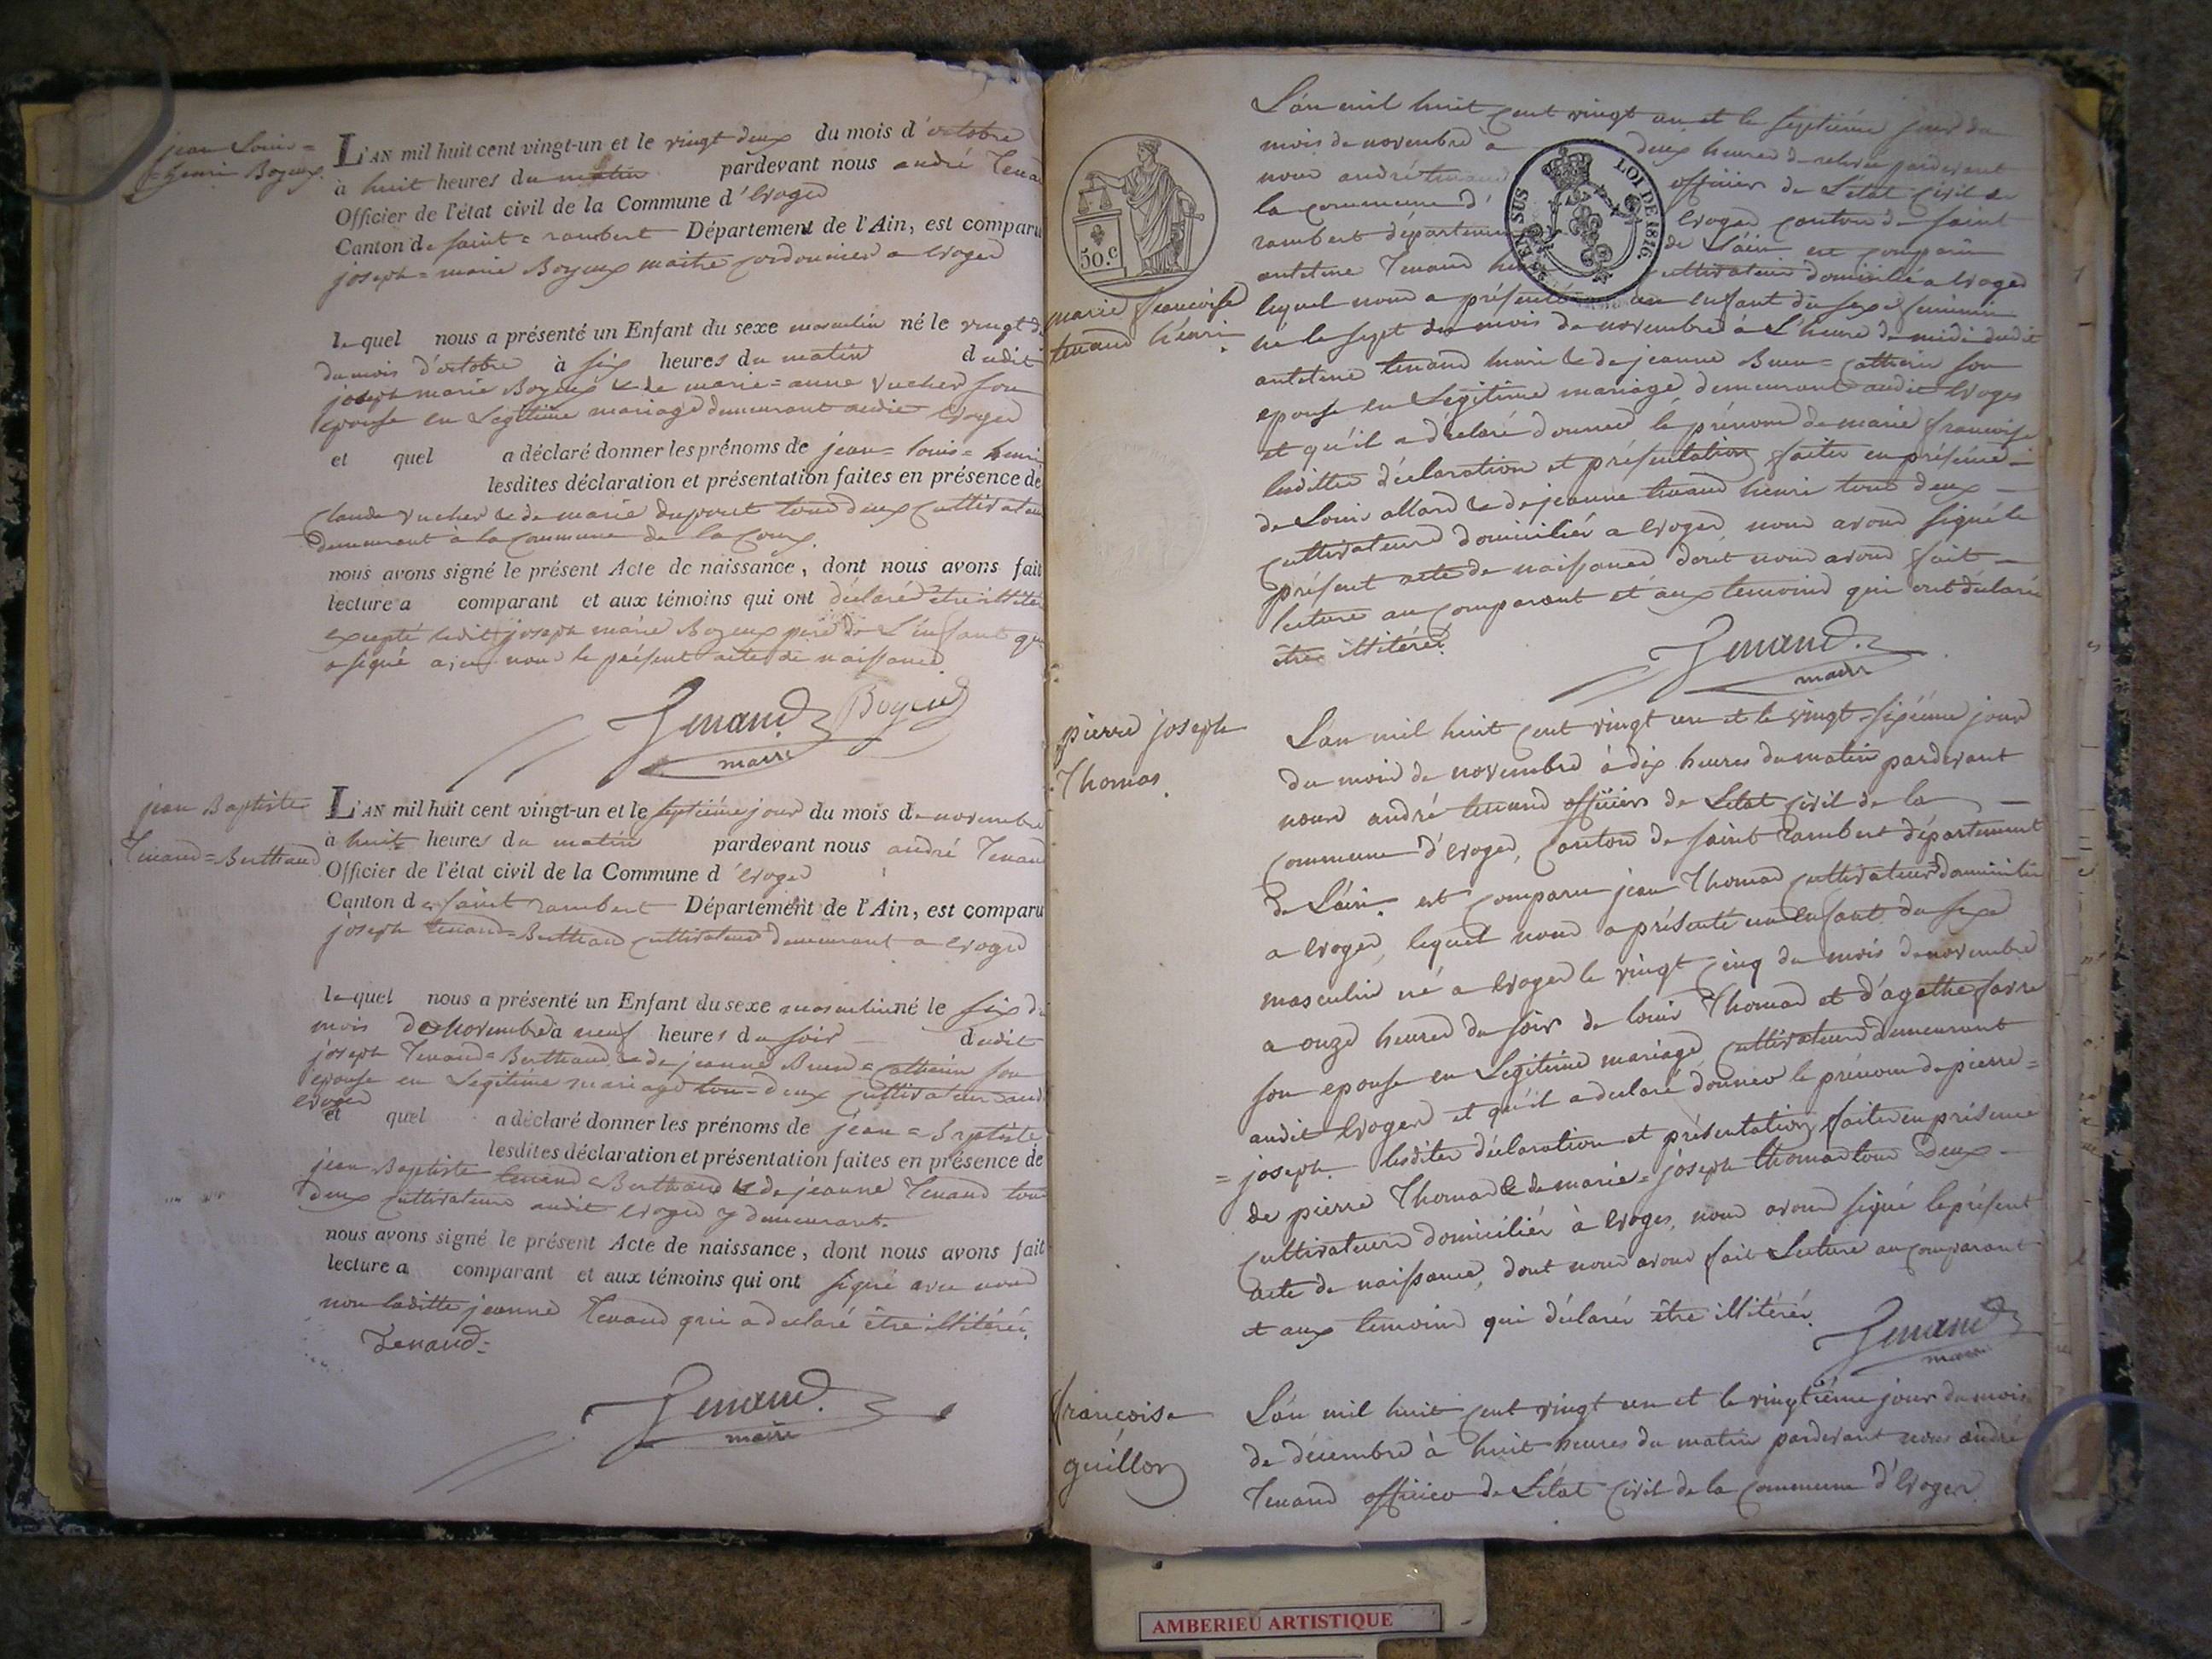 jean Louis =
= henri Boyeux.
L'AN mil huit cent vingt-un et le vingt deux du mois d'octobre
à huit heures du matin pardevant nous andré Tenan
Officier de l'état civil de la Commune d'Evoges
Canton de saint = rambert Département de l'Ain, est comparu
joseph = marie Boyeux maitre cordonnier a Evoges
le quel nous a présenté un Enfant du sexe masculin né le vingt d
du mois d'octobre à six heures du matin dudit
joseph marie Boyeux & de marie = anne Vucher son
epouse en Légitime mariage demeurant audit Evoges
et quel a déclaré donner les prénoms de jean = louis = henri
lesdites déclaration et présentation faites en présence de
Claude Vucher & de marie duporet tous deux Cultivateurs
demeurant à la Commune de la Coux.
nous avons signé le présent Acte de naissance, dont nous avons fait
lecture a comparant et aux témoins qui ont déclaré etre illitérés
excepté ledit joseph marie Boyeux pere de L'enfant qui
a signé avec nous le présent acte de naissance
Tenand Boyeux
maire
jean Baptiste
Tenand = Berthand
L'AN mil huit cent vingt-un et le septiéme jour du mois de novembre
à huit heures du matin pardevant nous andré Tenan
Officier de l'état civil de la Commune d'Evoges
Canton de saint rambert Département de l'Ain, est comparu
joseph tenand = Berthand cultivateur demeurant a Evoges
le quel nous a présenté un Enfant du sexe masculin né le six du
mois de Novembre à neuf heures du soir dudit
joseph Tenand = Berthand & de jeanne Buend = Catherin son
epouse en Legitime mariage tous deux cultivateurs aud
Evoges
et quel a déclaré donner les prénoms de jean = Baptiste
lesdites déclaration et présentation faites en présence de
jean Baptiste tenand = Berthand & de jeanne Tenand tous
deux cultivateurs audit Evoges y demeurant.
nous avons signé le présent Acte de naissance, dont nous avons fait
lecture a comparant et aux témoins qui ont signé avec nous
non laditte jeanne Tenand qui a declaré être illitérés.
Tenand =
Tenand.
maire
50.c
EN SUS LOI DE 1816
marie francoise
tenand henri
L'an mil huit cent vingt un et le septiéme jour du
mois de novembre à deux heures de relevée pardevant
nous andré tenand officier de L'état Civil de
la commune d'Evoges canton de saint
rambert département de L'ain est comparu
antetme Tenand cultivateur domicilié a Evoges
lequel nous a présenté un enfant du sexe feminin
né le sept du mois de novembre à L'heure de midi dudit
antetme tenand henri & de jeanne Buen = Catherin son
epouse en Légitime mariage, demeurant audit Evoges
et qu'il a déclaré donner le prénom de marie francoise
lesdittes déclaration et présentation faites en présence
de Louis allard & de jeanne tenand henri tous deux
cultivateurs domiciliés a Evoges, nous avons signé le
présent acte de naissance dont nous avons fait
lecture au comparant et aux temoins qui ont déclaré
être illitérés.
Tenand.
maire
pierre joseph
Thomas.
L'an mil huit cent vingt un et le vingt-sixiéme jour
du mois de novembre à dix heures du matin pardevant
nous andré tenand officier de L'état Civil de la
commune d'Evoges, Canton de saint rambert département
de L'ain. est comparu jean Thomas cultivateur domicilié
a Evoges, lequel nous a présenté un enfant du sexe
masculin né a Evoges le vingt cinq du mois de novembre
a onze heures du soir de louis Thomas et d'agathe favre
son epouse en Légitime mariage, cultivateurs demeurant
audit Evoges et qu'il a declaré donner le prénom de pierre =
= joseph. lesdites déclaration et présentation faites en présence
de pierre Thomas & de marie = joseph thomas tous deux
cultivateurs domiciliés à Evoges, nous avons signé le présent
acte de naissance, dont nous avons fait Lecture au comparant
et aux temoins qui déclarés être illitérés.
Tenand
maire
francoise
guillon
L'an mil huit cent vingt un et le vingtiéme jour du mois
de décembre à huit heures du matin pardevant nous andré
Tenand officier de L'état Civil de la commune d'Evoges
AMBERIEU ARTISTIQUE